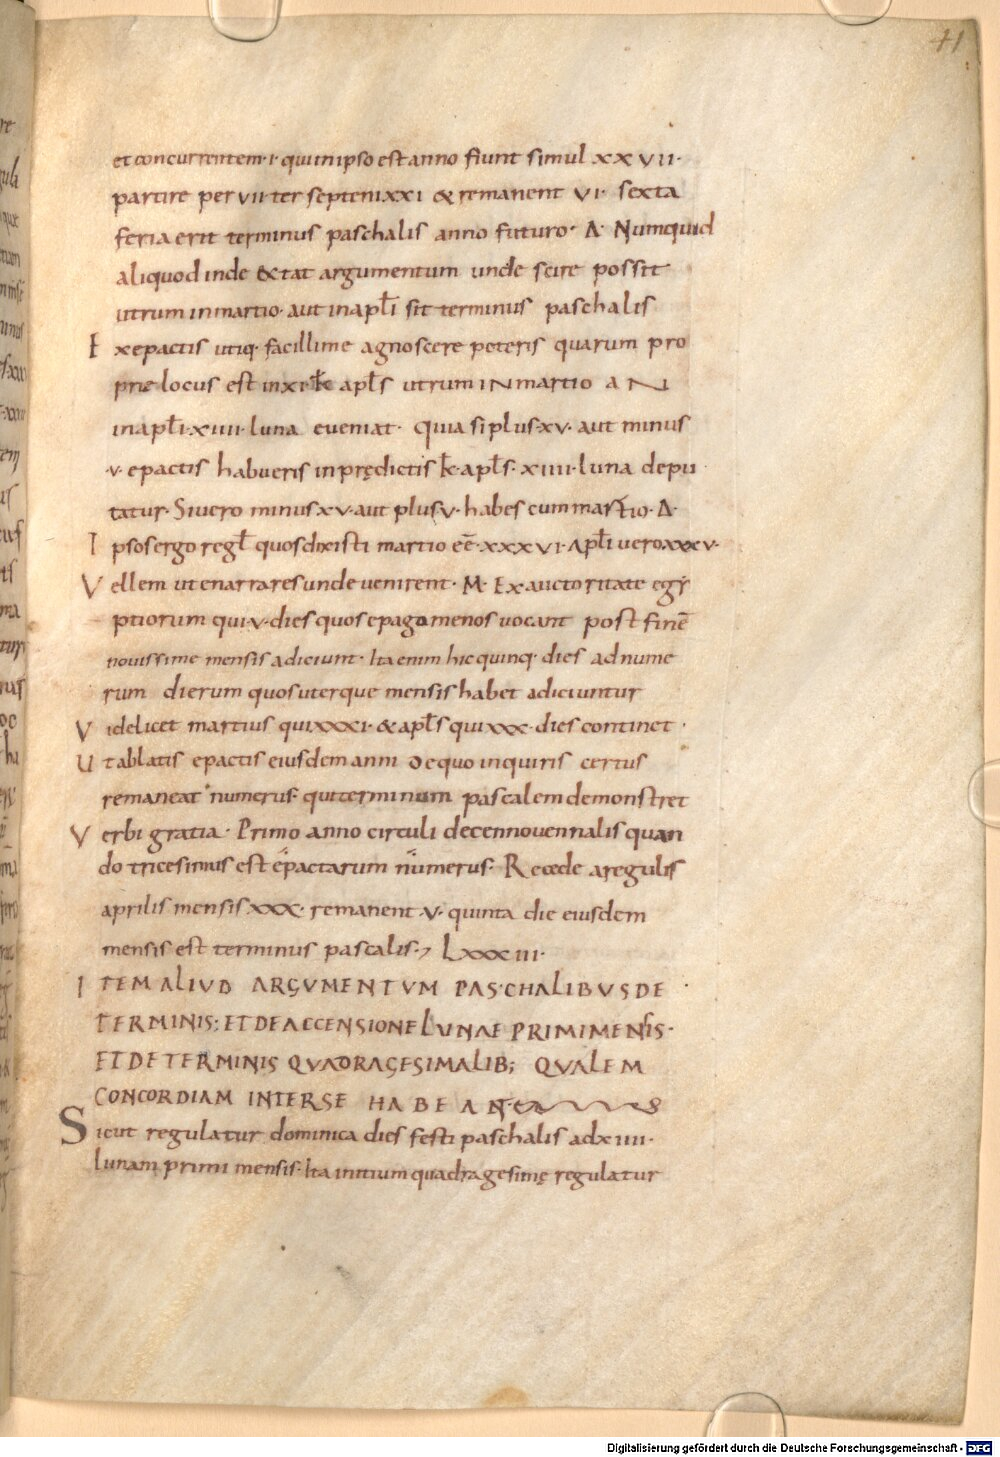 41
et concurrentem·i· qui in ipso est anno fiunt simul xxvii·
partire per vii ter septeni xxi & remanent vi· sexta
feria erit terminus paschalis anno futuro· Δ· Numquid
aliquod inde extat argumentum unde scire possit
utrum in martio· aut in apłi sit terminus paschalis
Ex epactis utiq· facillime agnoscere poteris quarum pro
prie locus est in xi· kł apłs utrum in martio an
in apłi·xiiii·luna eveniat· quia si plus·xv· aut minus
·v· epactis habueris in prędictis k·apłs·xiiii·luna depu
tatur· Si vero minus xv·aut plus v· habes cum martio·Δ·
Ipsos ergo regł quos dixisti martio eē·xxxvi·Apłi vero xxxv·
Vellem ut enarrares unde venirent· M· Ex auctoritate egy
ptiorum qui·v·dies quos epagomenos vocant post finē
novissime mensis adiciunt· Ita enim hic quinq· dies ad nume
rum dierum quos uterque mensis habet adiciuntur
Videlicet martius qui xxxi· & apłs qui xxx· dies continet·
Ut ablatis epactis eiusdem anni de quo inquiris certus
remaneat numerus· qui terminum pascalem demonstret
Verbi gratia· Primo anno circuli decennovennalis quan
do tricesimus est epactarum numerus· Recede a regulis
aprilis mensis xxx· remanent·v· quinta die eiusdem
mensis est terminus pascalis· Lxxxiii·
ITEM ALIUD ARGUMENTUM PASCHALIBUS DE
TERMINIS; ET DE ACCENSIONE LUNAE PRIMI MENSIS·
ET DE TERMINIS QUADRAGESIMALIB; QUALEM
CONCORDIAM INTER SE HABEANT
Sicut regulatur dominica dies festi paschalis ad xiiii·
lunam primi mensis· Ita initium quadragesimę regulatur
Digitalisierung gefördert durch die Deutsche Forschungsgemeinschaft - DFG